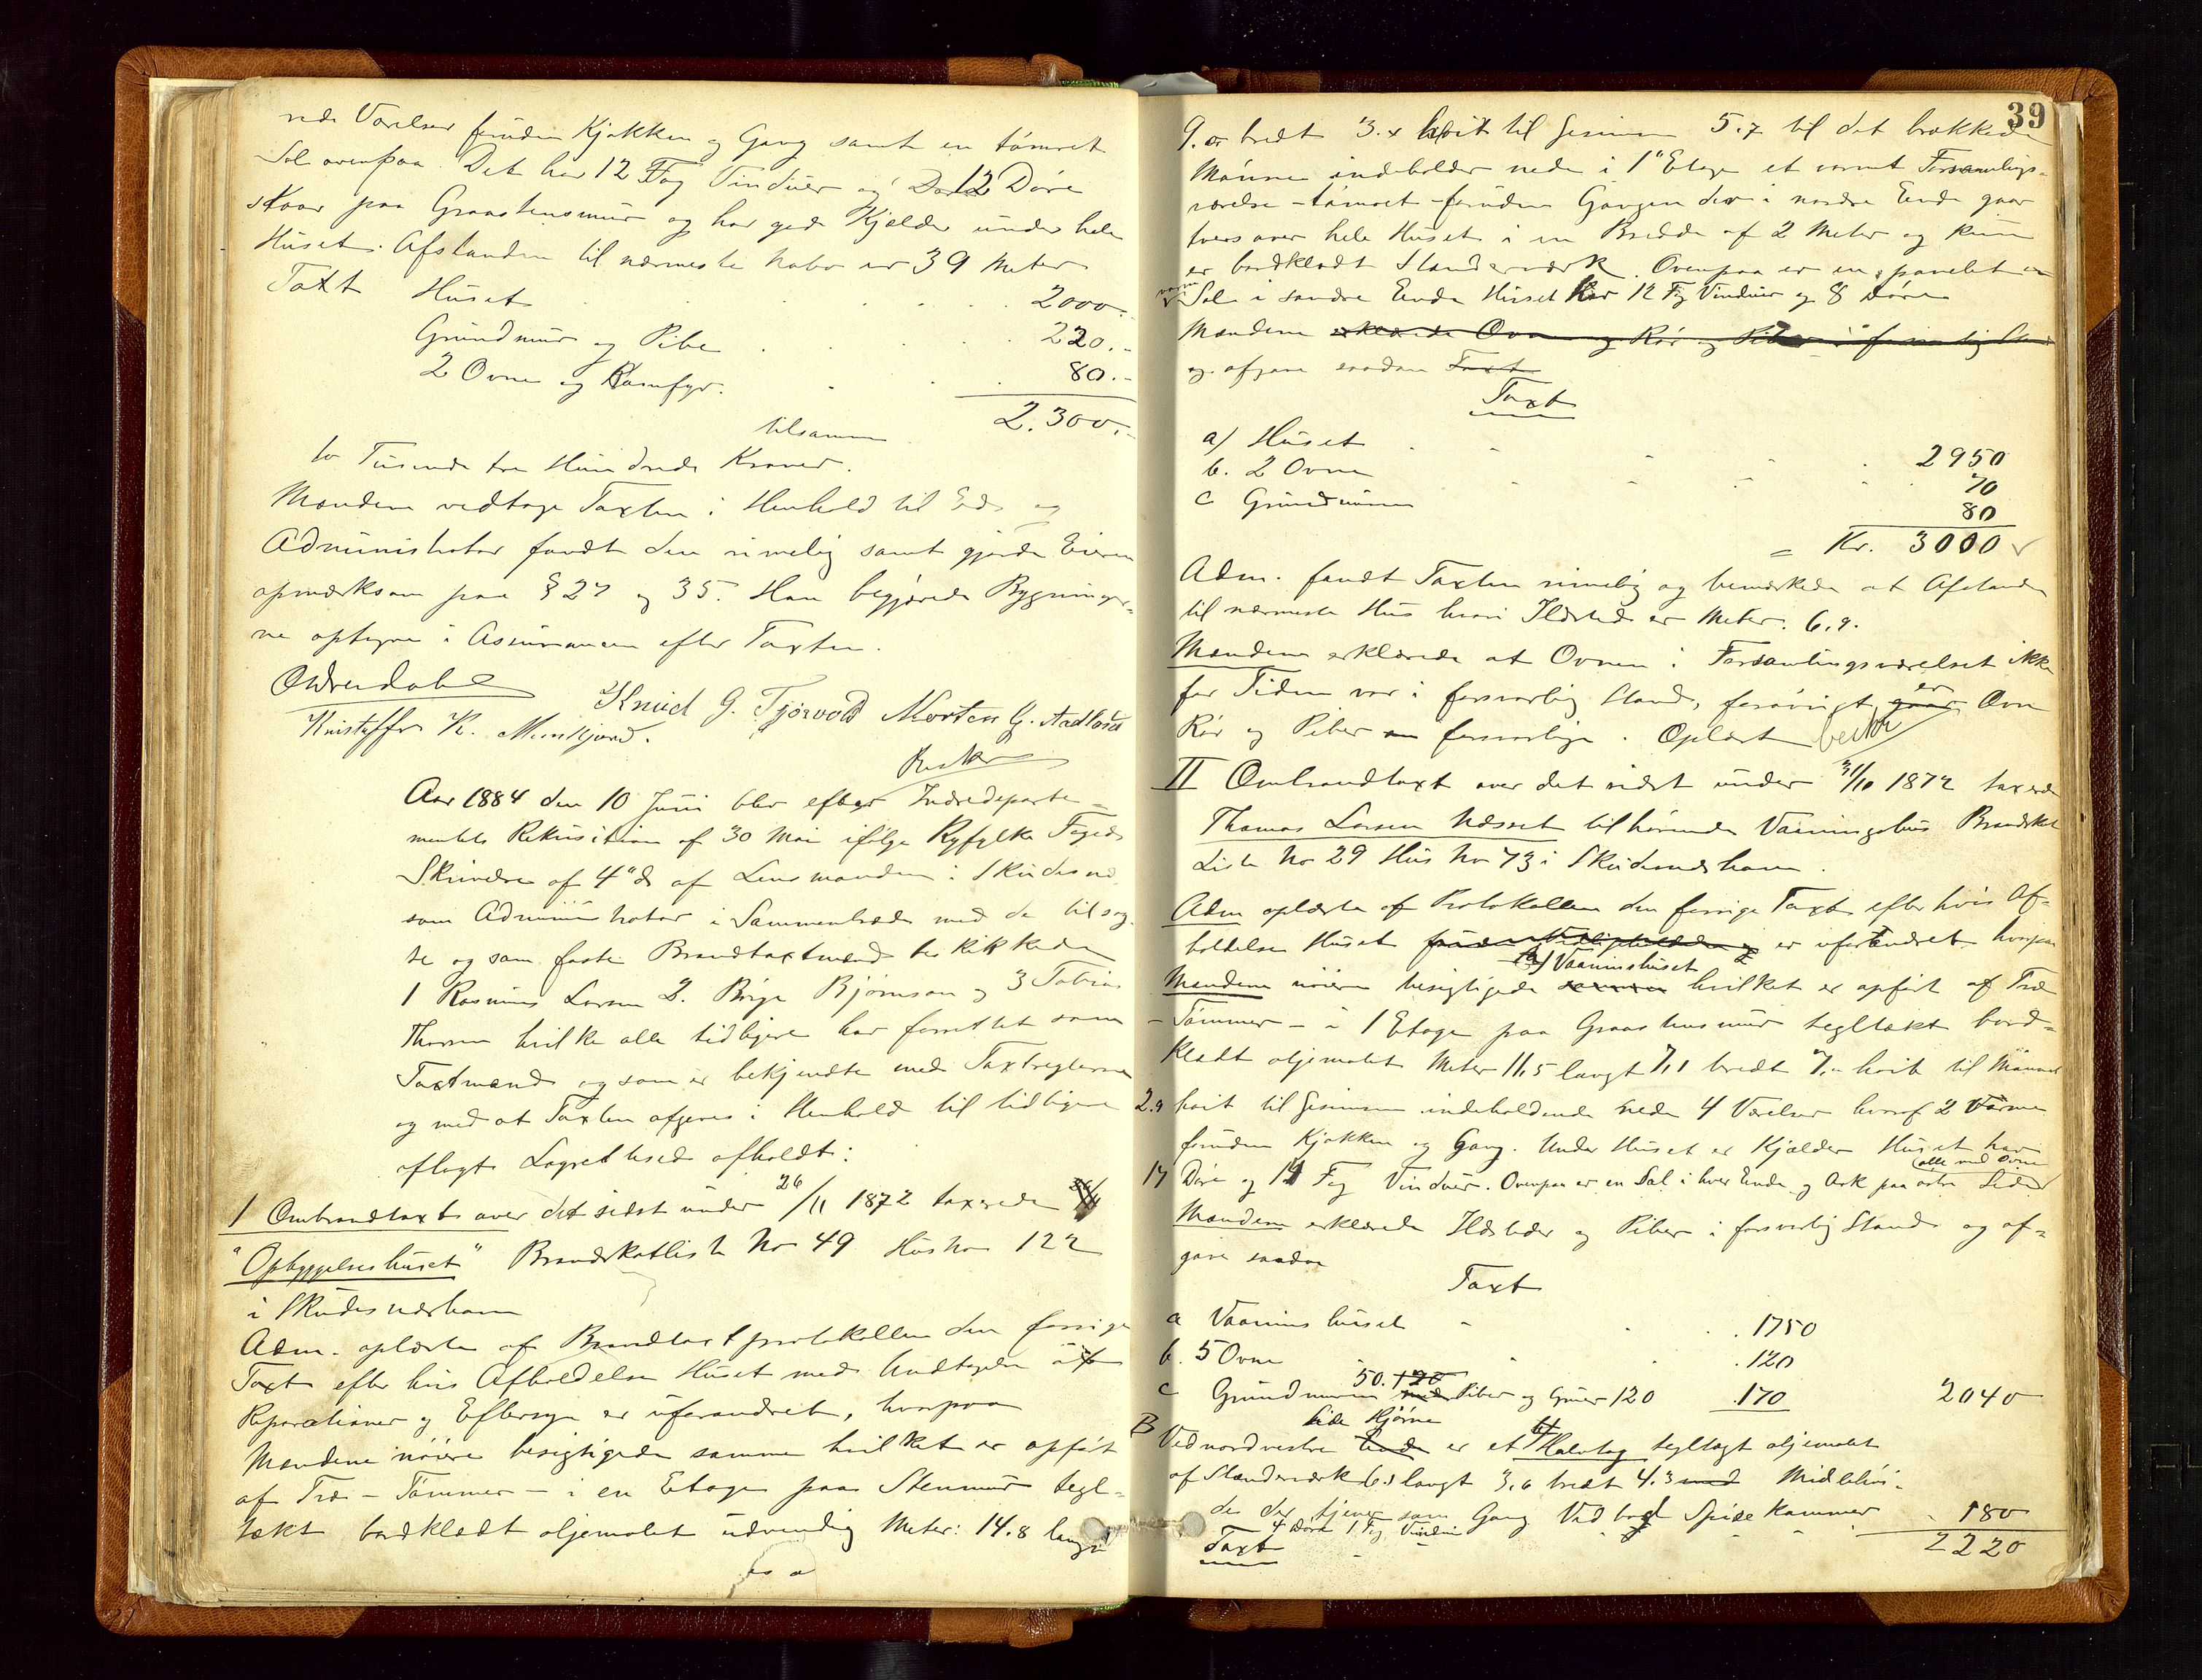 nede Værelser foruden Kjøkken og Gang samt en tømret
Sal ovenpaa. Det har 12 Fag Vinduer og 12 Døre
staar paa Graastensmur og har god Kjælder under hele
Huset. Afstanden til nærmeste Nabo er 39 Meter
Taxt Huset 2000.-
Grundmur og Pibe 220.-
2 Ovne og Komfyr. 80.-
tilsammen 2.300.-
to Tusinde tre Hundrede Kroner.
Mændene vedtoge Taxten i Henhold til Ed og
Administrator fandt den rimelig samt gjorde Eieren
opmærksom paa § 27 og 35. Han begjærede Bygninger-
ne optagne i Assurancen efter Taxten.
Knud G. Tjøsvold Morten G. Aadland
Kristoffer K. Munkjord.
Aar 1884 den 10 Juni blev efter Indredeparte-
mentets Rekvisition af 30 Mai ifølge Ryfylke Fogeds
Skrivelse af 4de ds af Lensmanden i Skudesnæs
som Administrator i Sammentræde med de tilsag-
te og som faste Brandtaxtmænd beskikkede
1 Rasmus Larsen 2. Børge Bjørnson og 3 Tobias
Thorsen hvilke alle tidligere har forrettet som
Taxtmænd og som er bekjendte med Taxtreglerne
og med at Taxten afgives i Henhold til tidligere
aflagt Lagrettesed afholdt:
1 Ombrandtaxt over det sidst under 26/11 1872 taxerede
"Opbyggelseshuset" Brandskatliste No 49 Hus No 122
i Skudesnæshavn
Adm. oplæste af Brandtaxtprotokollen den forrige
Taxt efter hvis Afholdelse Huset med Undtagelse af
Reparationer og Eftersyn er uforandret, hvorpaa
Mændene nøiere besigtigede samme hvilket er opført
af Træ - Tømmer - i en Etage paa Stenmur tegl-
tækt bordklædt oljemalet udvendig Meter: 14.8 langt
39
9. er bredt 3.x høit til Gesimsen 5.7 til det brækkede
Mønne indeholder nede i 1ste Etage et varmt Forsamlings-
værelse - tømret - foruden Gangen der i nordre Ende gaar
tvers over hele Huset i en Bredde af 2 Meter og kun
er bordklædt Standerværk. Ovenpaa er en panelet
Sal i søndre Ende Huset har 12 Fag Vinduer og 8 Døre
Mændene erklærede Ovn og Rør og Piber i forsvarlig Stand
og afgave saadan Taxt
Taxt
a) Huset 2950
b. 2 Ovne 70
c Grundmuren 80
= Kr. 3000
Adm. fandt Taxten rimelig og bemærkede at Afstanden
til nærmeste Hus hvori Ildsted er Meter: 6.9.
Mændene erklærede at Ovnen i Forsamlingsværelset ikke
for Tiden var i forsvarlig Stand, forøvrigt er Ovn
Rør og Piber forsvarlige. Oplæst
II Ombrandtaxt over det sidst under 31/10 1872 taxerede
Thomas Larsen Næsset tilhørende Vaaningshus Brandskat
Liste No 29 Hus No 73 i Skudesnæshavn.
Adm oplæste af Protokollen den forrige Taxt efter hvis Af-
holdelse Huset er uforandret hvorpaa
a) Vaaningshuset
Mændene nøiere besigtigede samme hvilket er opført af Træ
- Tømmer - i 1 Etage paa Graastensmur tegltækt bord-
klædt oljemalet Meter 11,5 langt 7,1 bredt 7,- høit til Mønnet
2.9 høit til Gesimsen indeholdende nede 4 Værelser hvoraf 2 Varme
foruden Kjøkken og Gang. Under Huset er Kjælder Huset har
17 Døre og 14 Fag Vinduer. Ovenpaa er en Sal i hver Ende og Ark paa østre Side
(alle med Ovne
Mændene erklærede Ildsteder og Piber i forsvarlig Stand og af-
gave saadan
Taxt
a Vaaningshuset 1750
b. 5 Ovne 120
c Grundmuren 50. 120 med Piber og Gruer 120 170 2040
B Ved nordvestre Ende er et Halvtag tegltagt oljemalet
Side Hjørne
af Standerværk 6.3 langt 3,6 bredt 4.3 med Middelhøi-
de der tjener som Gang Vedbod Spisekammer 180
4 Døre 1 Fag Vindu
Taxt 2220